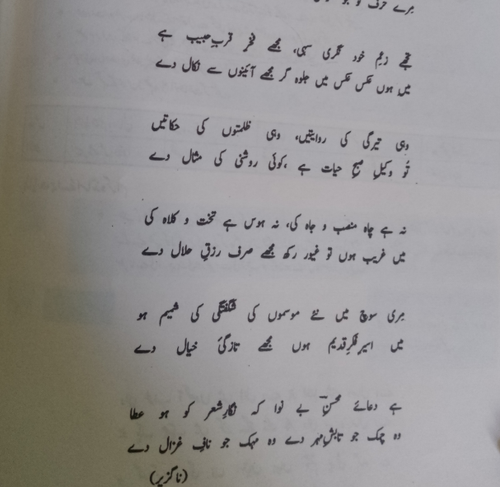 مرے حرف و
تجھے زعم خود نگری سہی، مجھے فخر قربِ حبیب ہے
میں ہوں عکس عکس میں جلوہ گر مجھے آئینوں سے نکال دے
وہی تیرگی کی روایتیں، وہی ظلمتوں کی حکایتیں
تُو وکیلِ صبحِ حیات ہے ،کوئی روشنی کی مثال دے
نہ ہے چاہ منصب و جاہ کی، نہ ہوس ہے تخت و کلاہ کی
میں غریب ہوں تو غیور رکھ مجھے صرف رزقِ حلال دے
مری سوچ میں نئے موسموں کی شگفتگی کی شمیم ہو
میں اسیرِ فکرِ قدیم ہوں مجھے تازگیٔ خیال دے
ہے دعائے محسنِؔ بے نوا کہ نگارِ شعر کو ہو عطا
وہ چمک جو تابشِ مہر دے وہ مہک جو نافِ غزال دے
(ناگزیر)